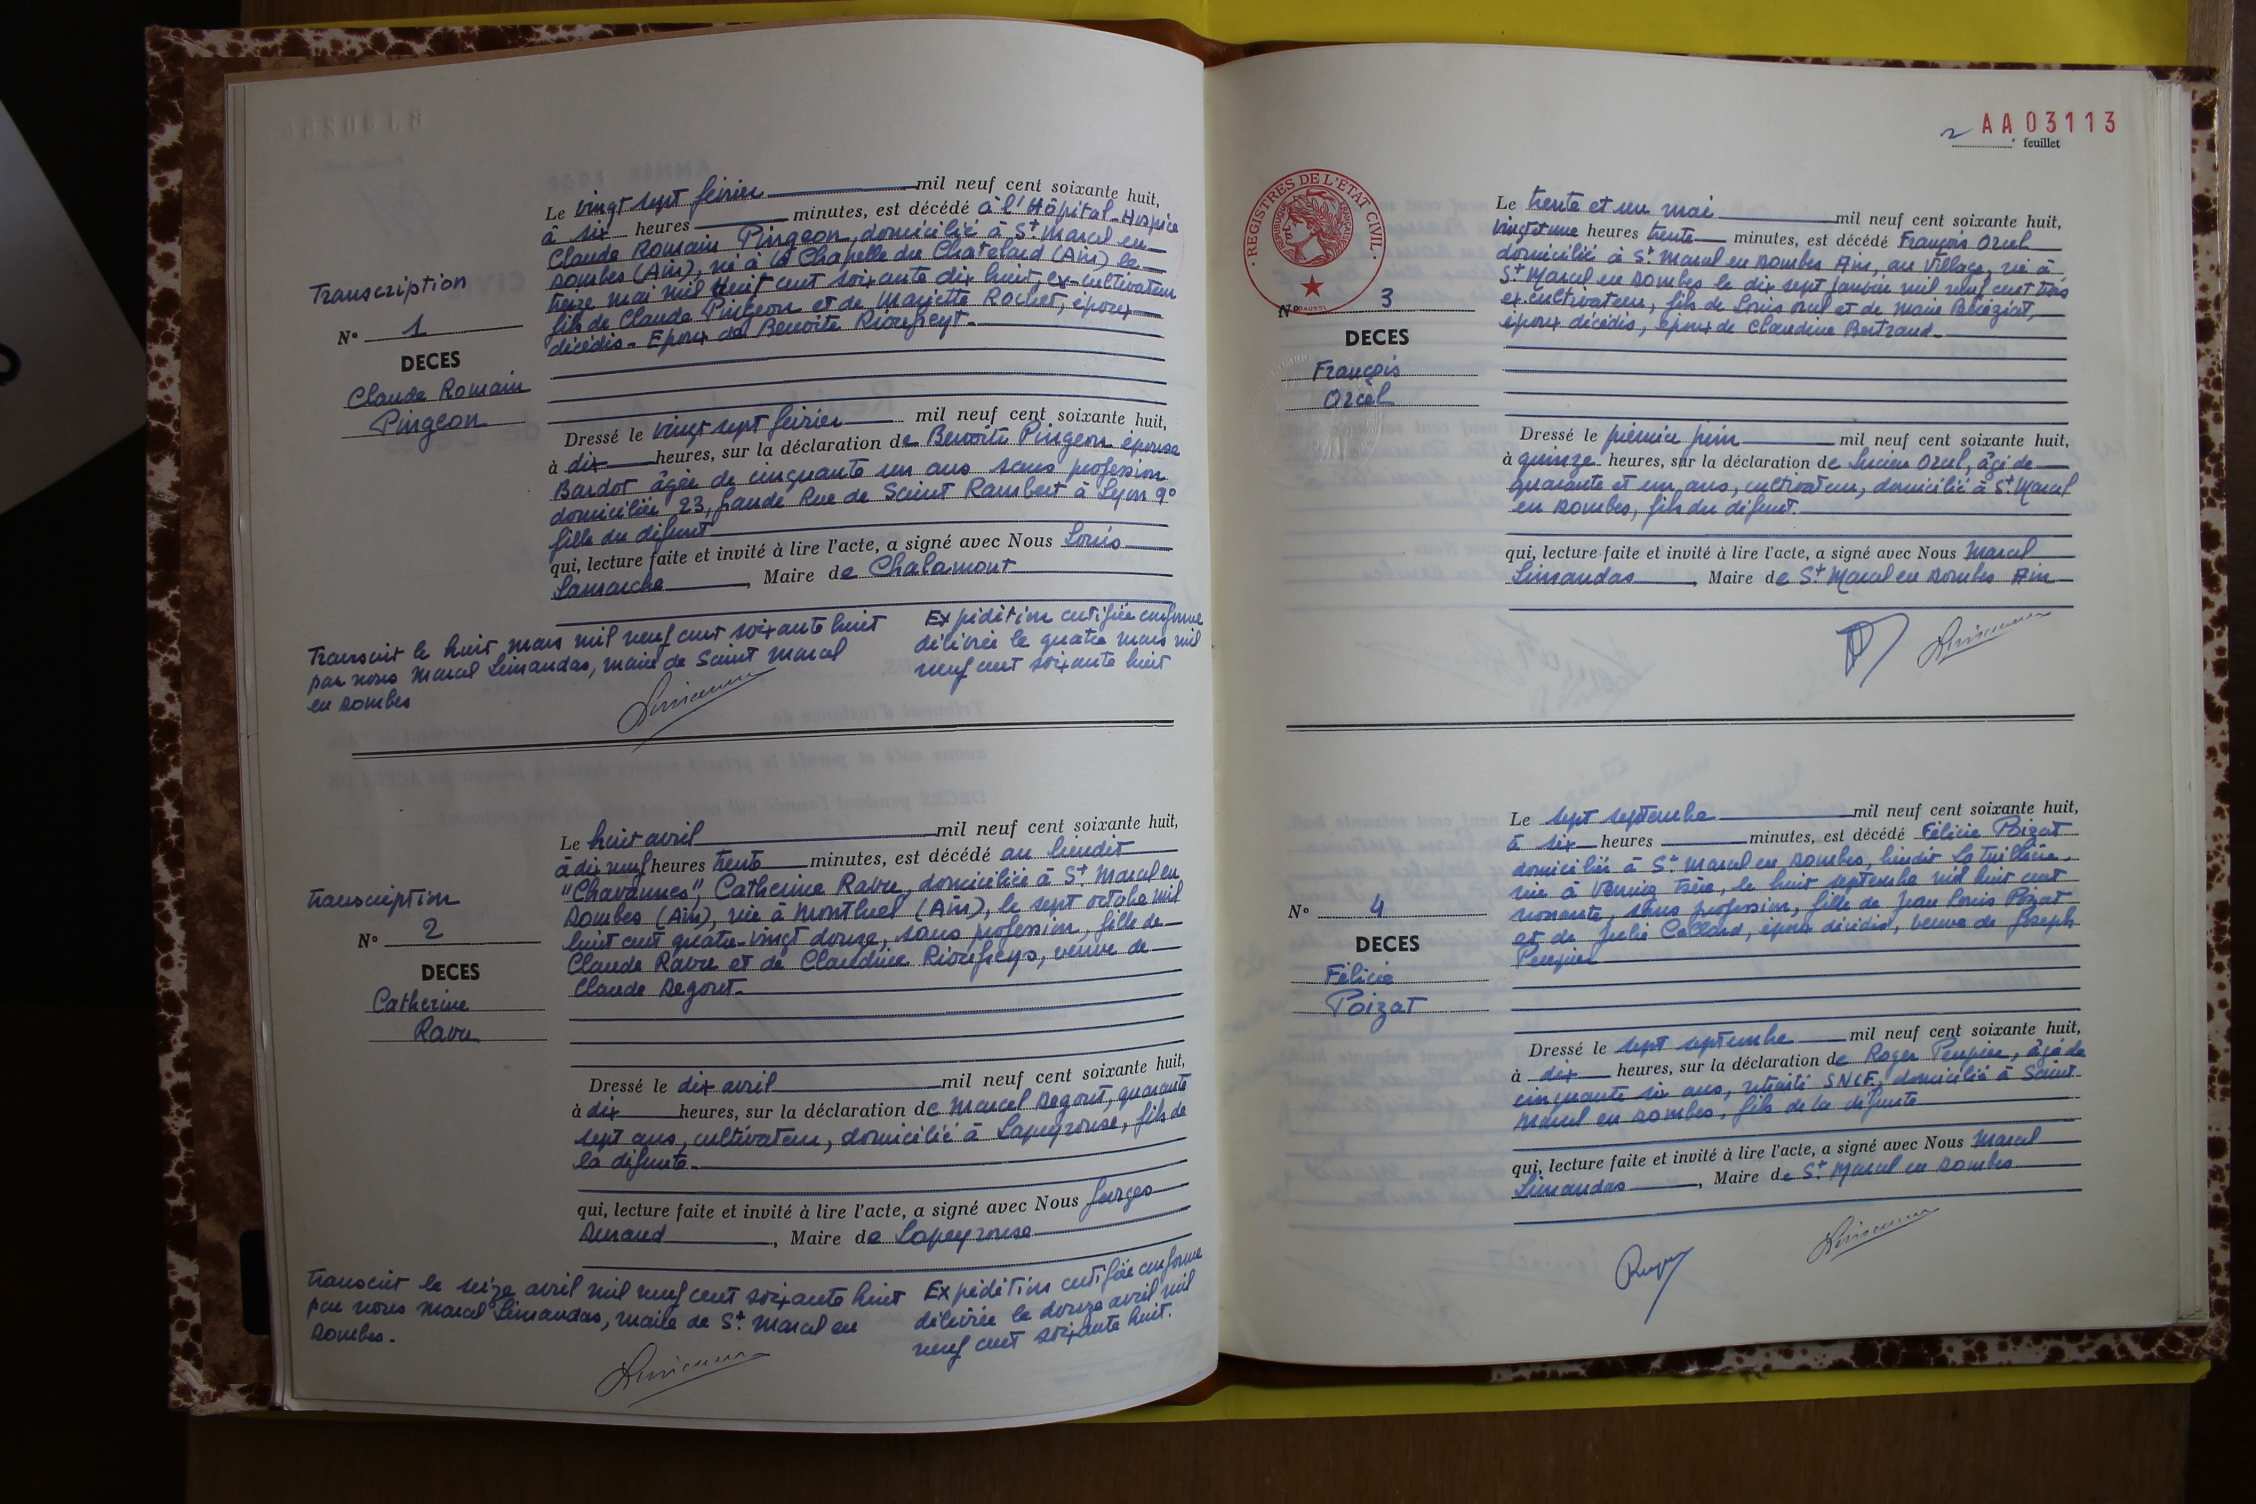 Le vingt sept février mil neuf cent soixante huit,
à six heures minutes, est décédé à l'Hôpital-Hospice
Claude Romain Pingeon, domicilié à St Marcel en
Dombes (Ain), né à la Chapelle du Chatelard (Ain) le
treize mai mil neuf cent soixante dix huit, ex-cultivateur
fils de Claude Pingeon et de Mariette Rochet, époux
décédés - Epoux de Benoîte Rioufreyt.
Transcription
N° 1
DECES
Claude Romain
Pingeon
Dressé le vingt sept février mil neuf cent soixante huit,
à dix heures, sur la déclaration de Benoîte Pingeon épouse
Bardot âgée de cinquante un ans sans profession
domiciliée 23, Grande Rue de Saint Rambert à Lyon 9°
fille du défunt
qui, lecture faite et invité à lire l'acte, a signé avec Nous Louis
Lamarche, Maire de Chalamont
Transcrit le huit mars mil neuf cent soixante huit
par nous Marcel Limandas, maire de Saint Marcel
en Dombes
Expédition certifiée conforme
délivrée le quatre mars mil
neuf cent soixante huit
Le huit avril mil neuf cent soixante huit,
à dix neuf heures trente minutes, est décédé au lieudit
"Chavannes", Catherine Ravu, domiciliée à St Marcel en
Dombes (Ain), née à Montluel (Ain), le sept octobre mil
huit cent quatre-vingt douze, sans profession, fille de
Claude Ravu et de Claudine Rioufreyt, veuve de
Claude Degout.
Transcription
N° 2
DECES
Catherine
Ravu
Dressé le dix avril mil neuf cent soixante huit,
à dix heures, sur la déclaration de Marcel Degout, quarante
sept ans, cultivateur, domicilié à Lapeyrouse, fils de
la défunte.
qui, lecture faite et invité à lire l'acte, a signé avec Nous Georges
Durand, Maire de Lapeyrouse
Transcrit le seize avril mil neuf cent soixante huit
par nous Marcel Limandas, maire de St Marcel en
Dombes.
Expédition certifiée conforme
délivrée le douze avril mil
neuf cent soixante huit.
AA03113
2 feuillet
REGISTRES DE L'ETAT CIVIL
REPUBLIQUE FRANÇAISE
Le trente et un mai mil neuf cent soixante huit,
vingt et une heures trente minutes, est décédé François Orcel
domicilié à St Marcel en Dombes Ain, au Village, né à
St Marcel en Dombes le dix sept janvier mil neuf cent trois
ex-cultivateur, fils de Louis Orcel et de Marie Béréziat,
époux décédés, époux de Claudine Bertrand.
N° 3
DECES
François
Orcel
Dressé le premier juin mil neuf cent soixante huit,
à quinze heures, sur la déclaration de Lucien Orcel, âgé de
quarante et un ans, cultivateur, domicilié à St Marcel
en Dombes, fils du défunt.
qui, lecture faite et invité à lire l'acte, a signé avec Nous Marcel
Limandas, Maire de St Marcel en Dombes Ain
Le sept septembre mil neuf cent soixante huit,
à six heures minutes, est décédé Félicie Poizat
domiciliée à St Marcel en Dombes, lieudit La Tuilière,
née à Isère, le huit septembre mil huit cent
nonante, sans profession, fille de Jean Louis Poizat
et de Julie Collard, époux décédés, veuve de Joseph
N° 4
DECES
Félicie
Poizat
Dressé le sept septembre mil neuf cent soixante huit,
à dix heures, sur la déclaration de Roger, âgé de
cinquante six ans, retraité SNCF, domicilié à Saint
Marcel en Dombes, fils de la défunte
qui, lecture faite et invité à lire l'acte, a signé avec Nous Marcel
Limandas, Maire de St Marcel en Dombes